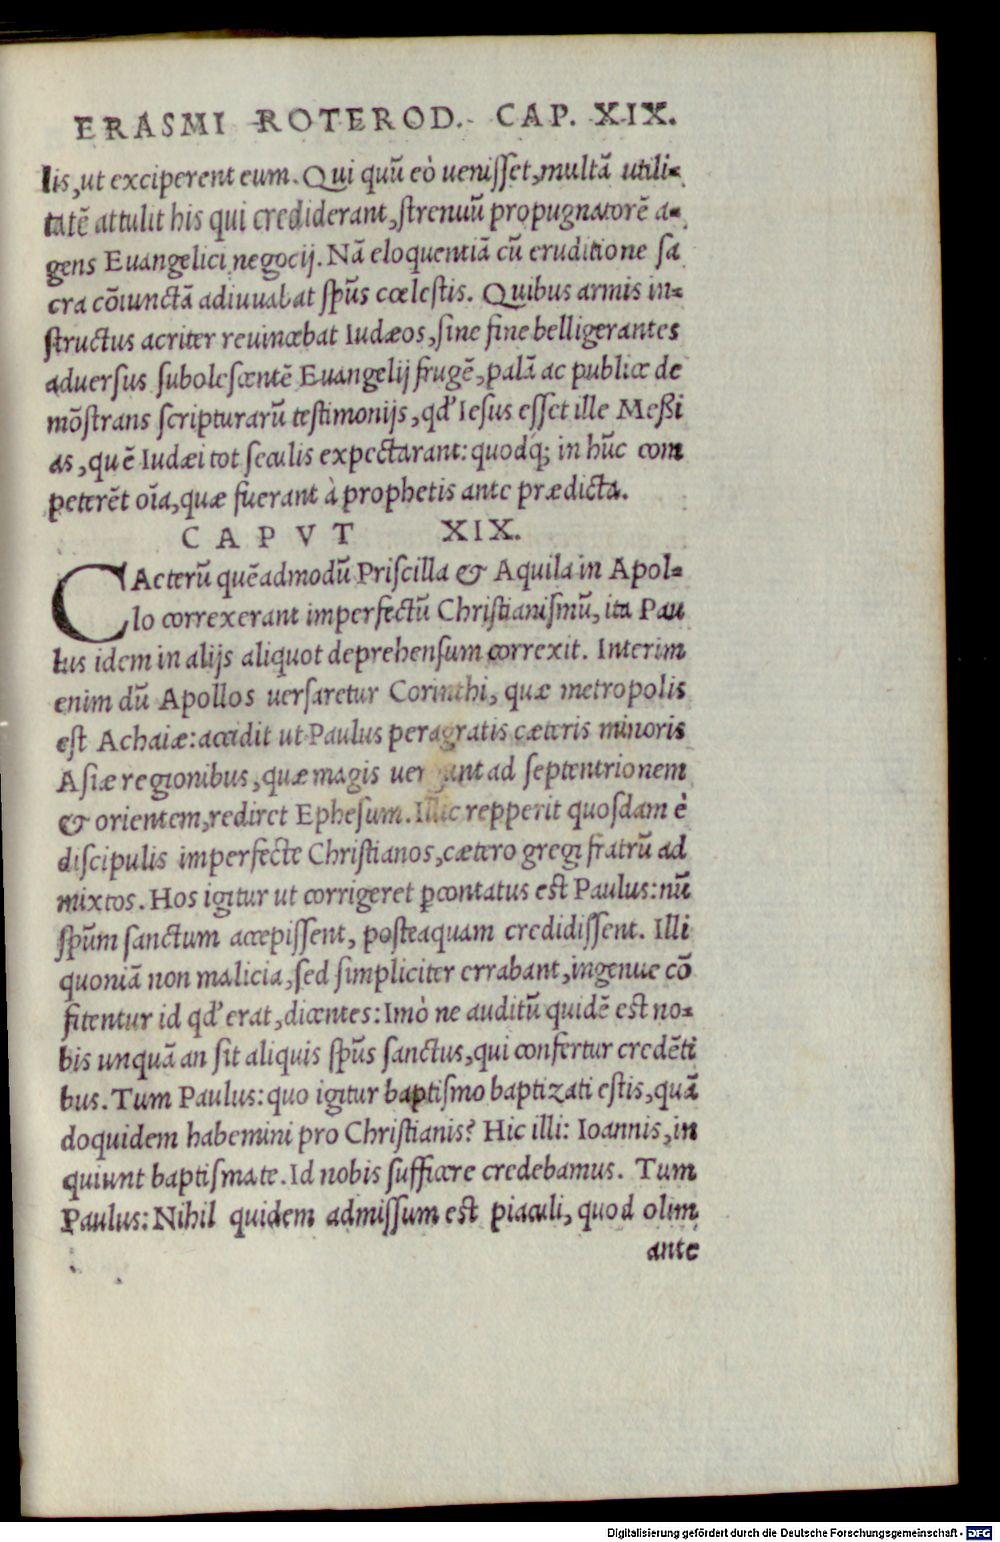 ERASMI ROTEROD. CAP. XIX.
lis, ut exciperent eum. Qui quū eò uenisset, multā utili-
tatē attulit his qui crediderant, strenuū propugnatorē a-
gens Euangelici negocij. Nā eloquentiā cū eruditione sa
cra cōiunctā adiuuabat spūs cœlestis. Quibus armis in-
structus acriter reuincebat Iudæos, sine fine belligerantes
aduersus subolescentē Euangelij frugē, palā ac publice de
mōstrans scripturarū testimonijs, qđ Iesus esset ille Meßi
as, quē Iudæi tot seculis expectarant: quodq; in hūc com
peterēt oīa, quæ fuerant à prophetis ante prædicta.
CAPVT XIX.
CAeterū quēadmodū Priscilla & Aquila in Apol-
lo correxerant imperfectū Christianismū, ita Pau
lus idem in alijs aliquot deprehensum correxit. Interim
enim dū Apollos uersaretur Corinthi, quæ metropolis
est Achaiæ: accidit ut Paulus peragratis cæteris minoris
Asiæ regionibus, quæ magis uergunt ad septentrionem
& orientem, rediret Ephesum. Illic repperit quosdam è
discipulis imperfecte Christianos, cætero gregi fratrū ad
mixtos. Hos igitur ut corrigeret ꝑcontatus est Paulus: nū
spūm sanctum accepissent, posteaquam credidissent. Illi
quoniā non malicia, sed simpliciter errabant, ingenue cō
fitentur id qđ erat, dicentes: Imò ne auditū quidē est no-
bis unquā an sit aliquis spūs sanctus, qui confertur credēti
bus. Tum Paulus: quo igitur baptismo baptizati estis, quā
doquidem habemini pro Christianis? Hic illi: Ioannis, in
quiunt baptismate. Id nobis sufficere credebamus. Tum
Paulus: Nihil quidem admissum est piaculi, quod olim
ante
Digitalisierung gefördert durch die Deutsche Forschungsgemeinschaft - DFG